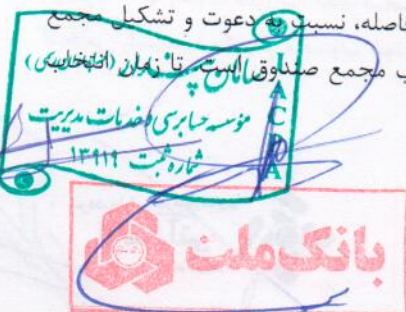 فاصله، نسبت به دعوت و تشکیل مجمع
ب مجمع صندوق است. تا زمان انتخاب
سامان
IACPA
موسسه حسابرسی و خدمات مدیریت
شماره ثبت ۱۳۹۱۹
بانک ملت